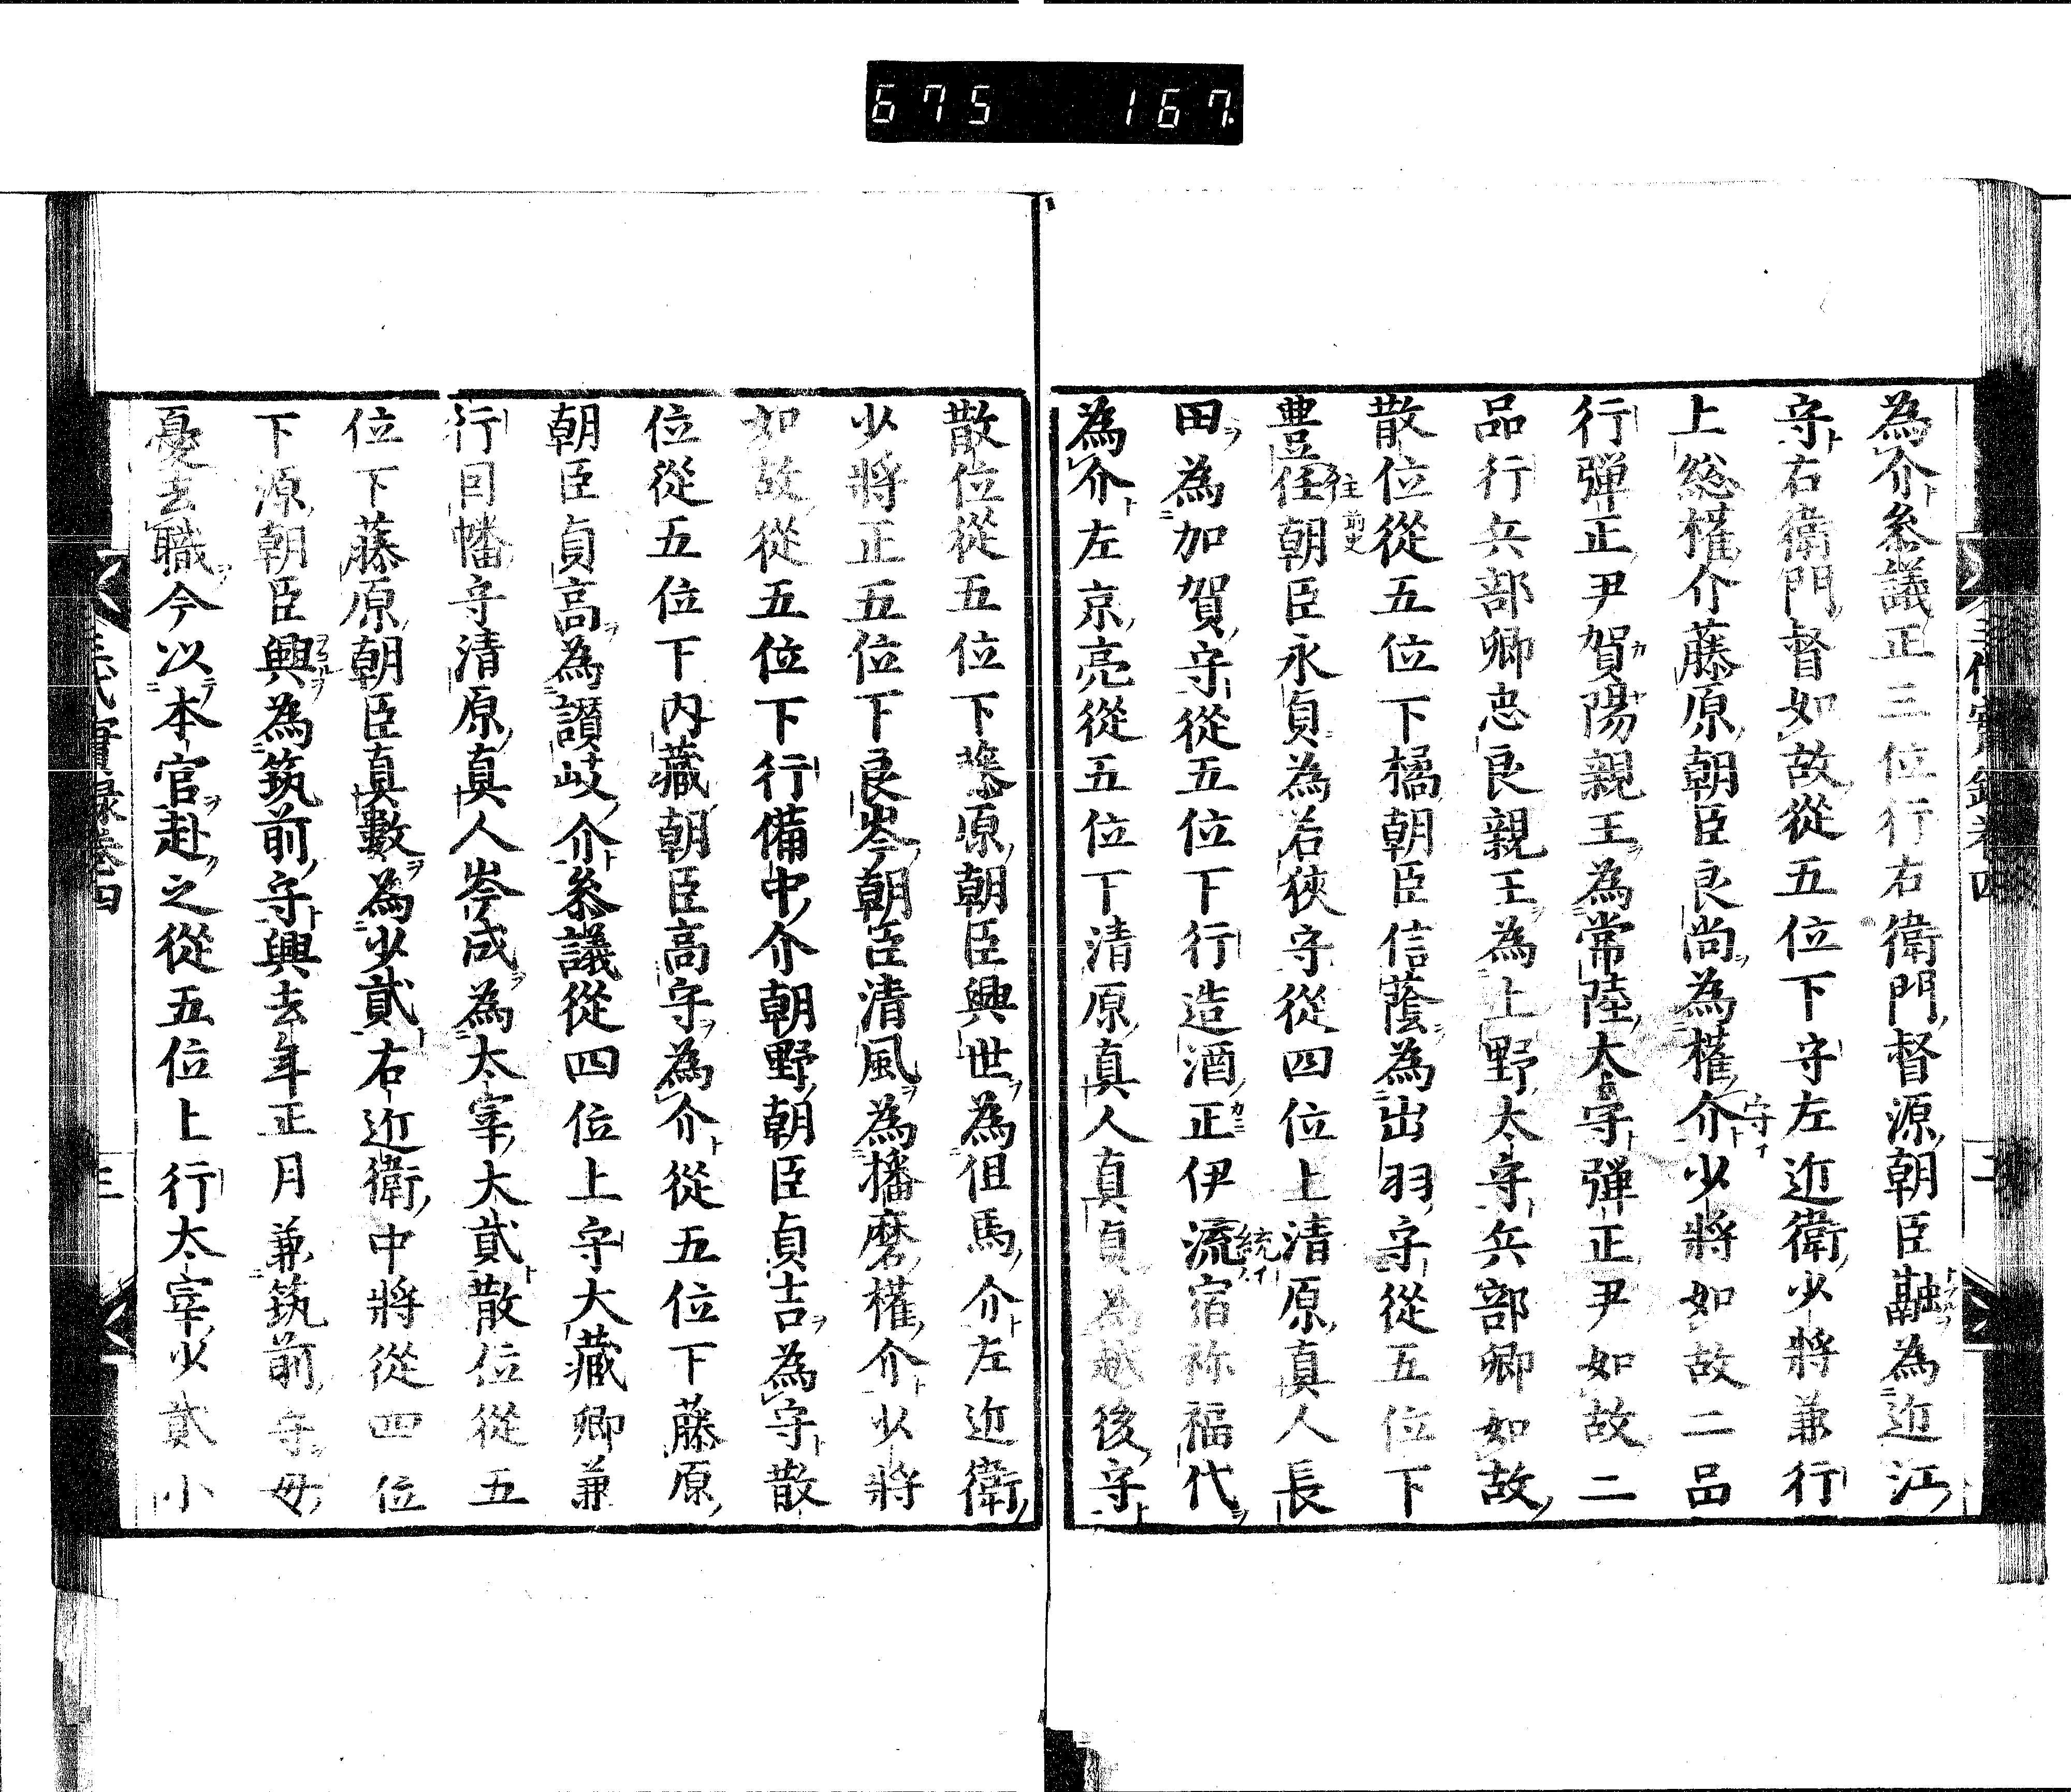 675 167
三代實録卷四 二
為介參議正三位行右衛門督源朝臣融為近江
守右衛門督如故從五位下守左近衛少將兼行
上総權介藤原朝臣良尚為權介少將如故二品
行彈正尹賀陽親王為常陸太守彈正尹如故二
品行兵部卿忠良親王為上野太守兵部卿如故
散位從五位下橘朝臣信蔭為出羽守從五位下
豊住朝臣永貞為若狹守從四位上清原真人長
田為加賀守從五位下行造酒正伊流宿祢福代
為介左京亮從五位下清原真人真貞為越後守
散位從五位下藤原朝臣興世為伹馬介左近衛
少將正五位下良岑朝臣清風為播磨權介少將
如故從五位下行備中介朝野朝臣貞吉為守散
位從五位下内藏朝臣高守為介從五位下藤原
朝臣貞高為讃岐介參議從四位上守大藏卿兼
行因幡守清原真人岑成為太宰大貳散位從五
位下藤原朝臣真數為少貳右近衛中將從四位
下源朝臣興為筑前守興去年正月兼筑前守母
憂去職今以本官赴之從五位上行太宰少貳小
三代實録卷四 三